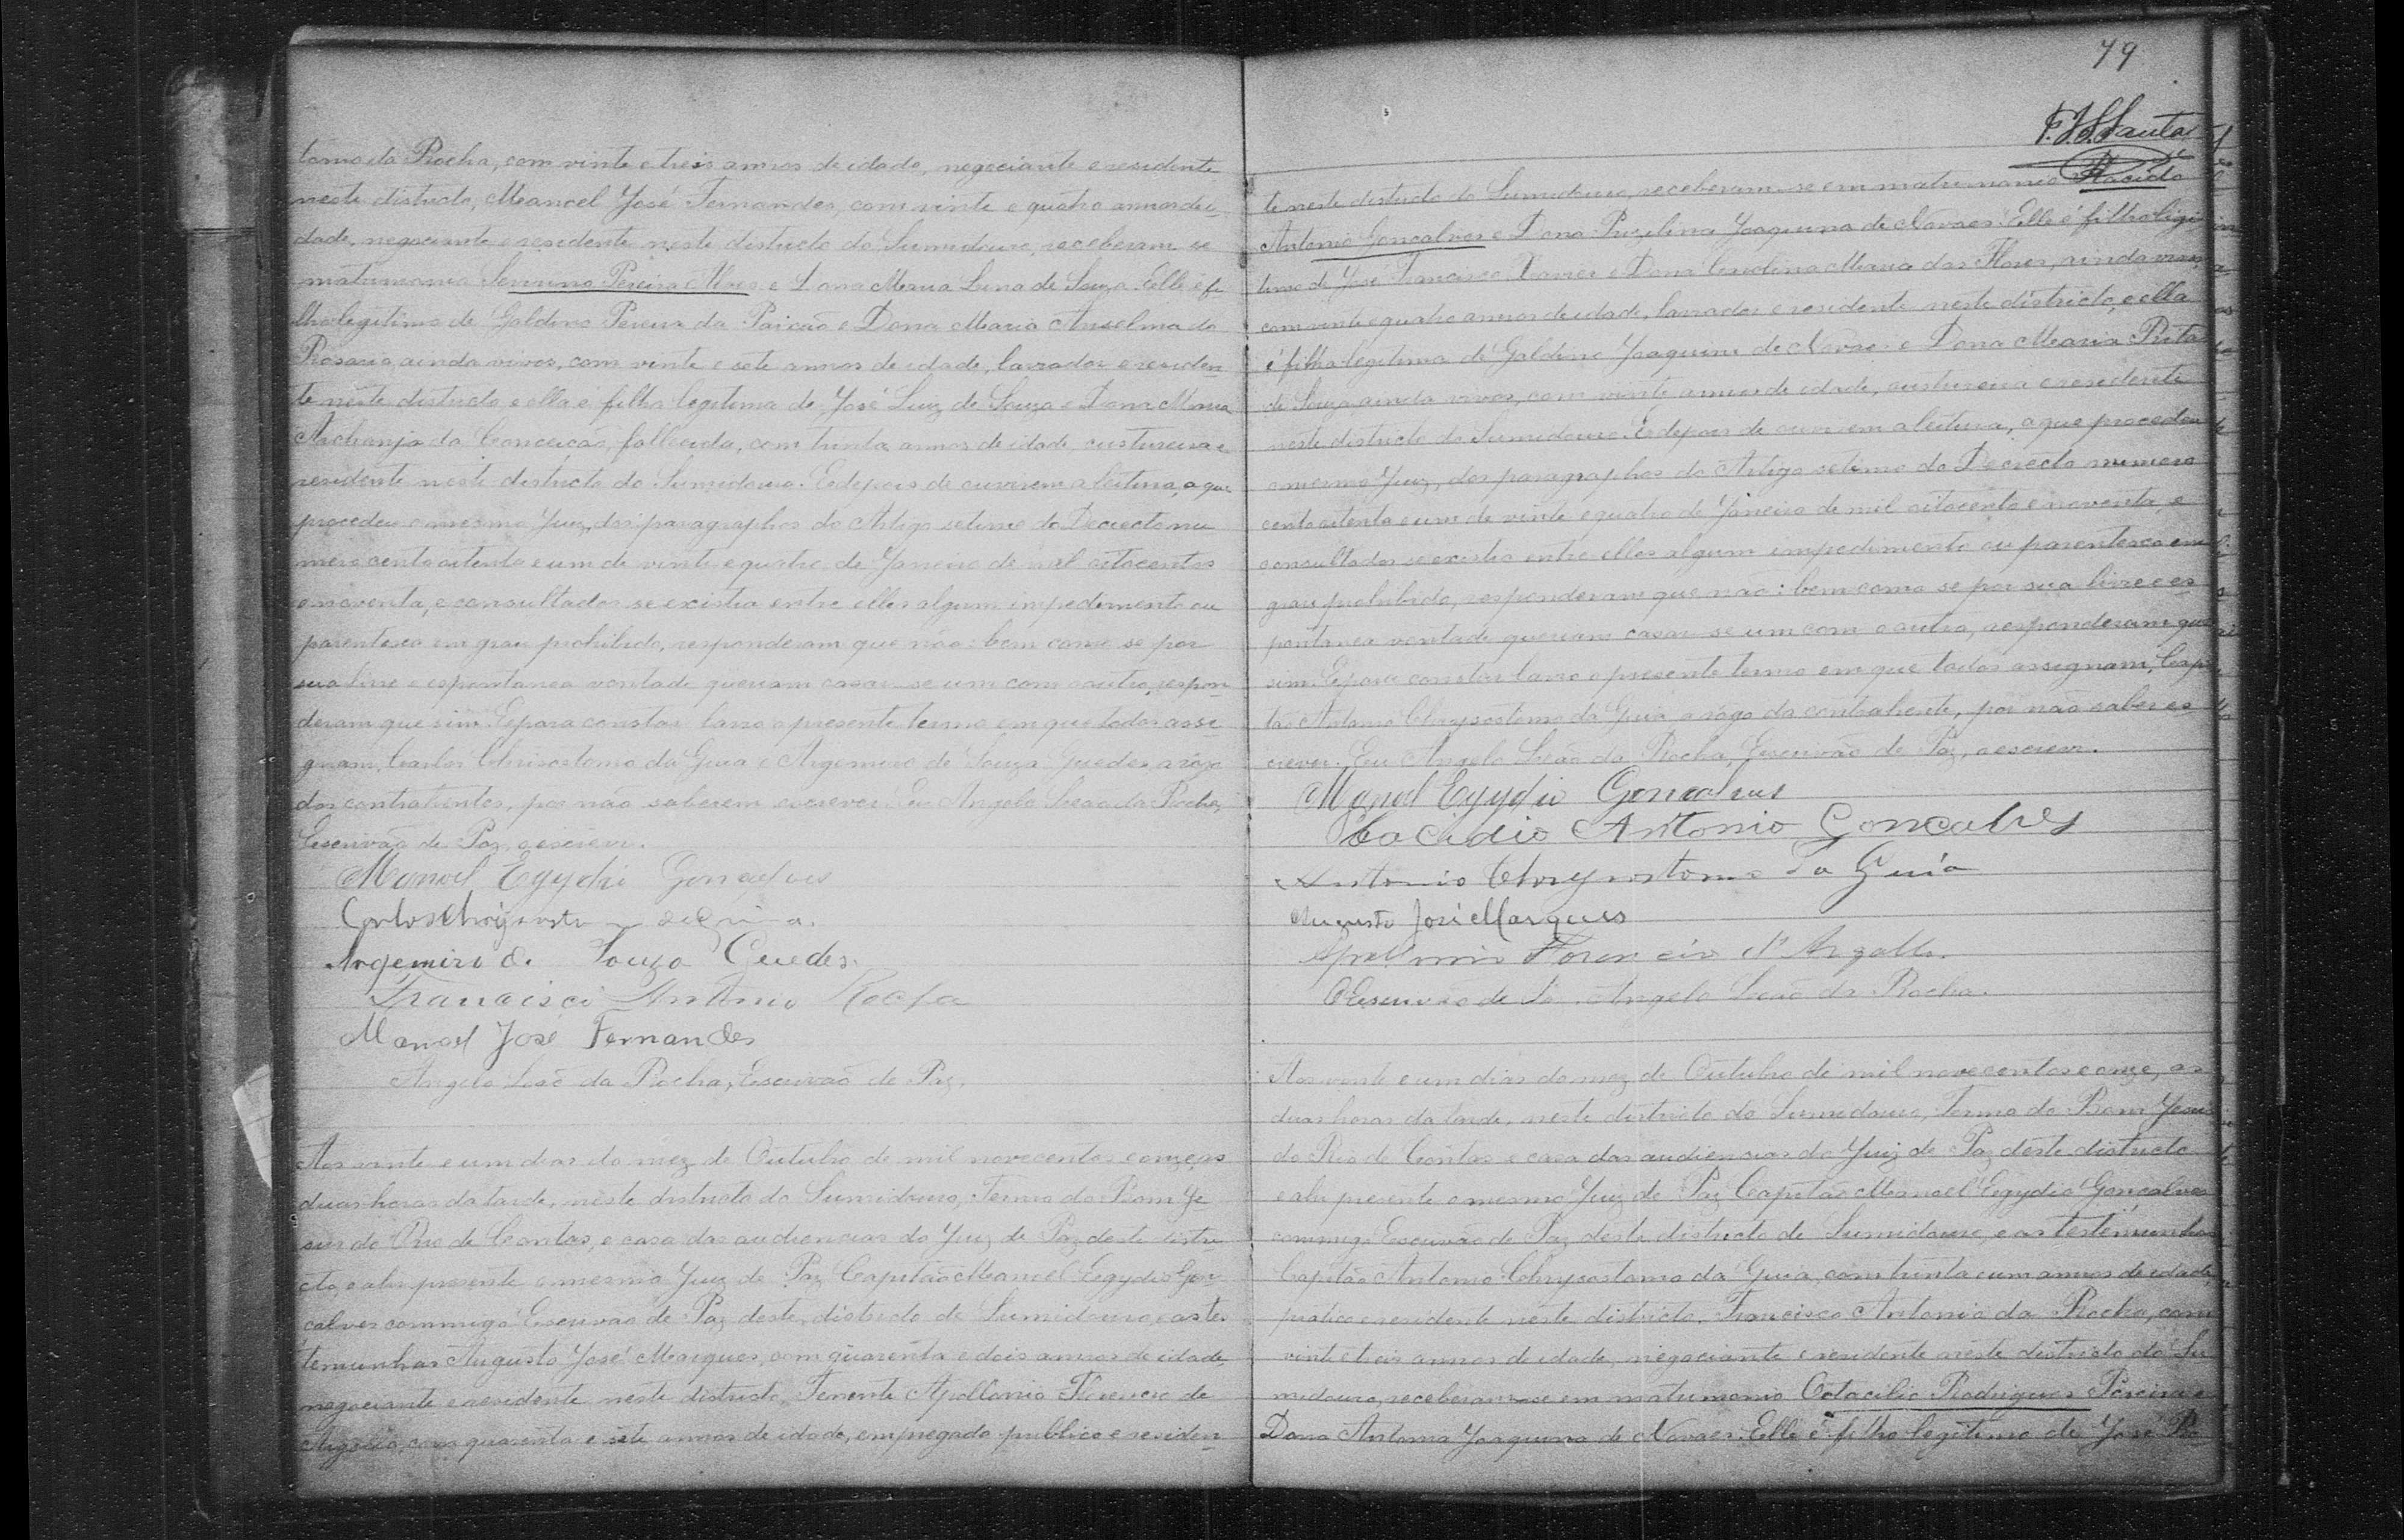 tonio da Rocha, com vinte e treis annos de idade, negociante e residente
neste districto, Manoel José Fernandes, com vinte e quatro annos dei-
dade, negociante e residente neste districto do Sumidouro, receberam se
matrimonio Severino Pereira Alves e Dona Maria Luna de Souza. Elle é fi
lho legitimo de Galdino Pereira da Paixão e Dona Maria Anselma do
Rosario, ainda vivos, com vinte e sete annos de idade, lavrador e residen
te neste districto e ella é filha legitima de José Luiz de Souza e Dona Maria
Archanja da Conceicão, fallecida, com trinta annos de idade, custureira e
residente neste districto do Sumidouro. E depois de ouvirem a leitura, a que
procedeu o mesmo Juiz, dos paragraphos do Artigo setimo do Decreto nu
mero cento oitenta e um de vinte e quatro de Janeiro de mil oitocentos
e noventa, e consultados se existia entre elles algum impedimento ou
parentesco em grau prohibido, responderam que não: bem como se por
sua livre e espontanea vontade queriam casar-se um com o outro, respon
deram que sim. E para constar lavro o presente termo em que todos assi
gnam, Carlos Chrisostomo da Guia e Argemiro de Souza Guedes, a rôgo
dos contrahentes, por não saberem escrever. Eu Angelo Leão da Rocha,
Escrivão de Paz, o escrevi.
Manoel Egydio Goncalves
Carlos Chrizosto da Guia.
Argemiro de Souza Guedes.
Francisco Antonio Rocha
Manoel José Fernandes
Angelo Leão da Rocha, Escrivão de Paz.
Aos vante e um dias do mez de Outubro de mil novecentos e onze, as
duas horas da tarde, neste districto do Sumidouro, Termo do Bom Je
sus do Rio de Contas, e casa das audiencias do Juiz de Paz deste distri
cto, e ahi presente o mesmo Juiz de Paz Capitão Manoel Egydio Gon
calves commigo Escrivão de Paz deste districto de Sumidouro, e as tes
temunhas Augusto José Marques, com quarenta e dois annos de idade,
negociante e residente neste districto, Tenente Apollonio Florencio de
Argollo, com quarenta e sete annos de idade, empregado publico e residen
79
te neste districto do Sumidouro, receberam-se em matrimonio Placido
Antonio Goncalves e Dona Joaquina de Novaes. Elle é filho legi
timo de José Francisco Xavier e Dona Maria das Flores, ainda vivos,
com vinte e quatro annos de idade, lavrador e residente neste districto, e ella
é filha legitima de Galdino Joaquim de Novaes e Dona Maria Rita
de Souza, ainda vivos, com vinte annos de idade, custureira e residente
neste districto do Sumidouro. E depois de ouvirem a leitura, a que procedeu
o mesmo Juiz, dos paragraphos do Artigo setimo do Decreto numero
cento oitenta e um de vinte e quatro de Janeiro de mil oitocento e noventa, e
consultados se existia entre elles algum impedimento ou parentesco em
grau prohibido, responderam que não: bem como se por sua livre e es
pontanea vontade queriam casar-se um com o outro, responderam que
sim. E para constar lavro o presente termo em que todos assignam, Capi
tão Antonio Chrysostomo da Guia a rôgo da contrahente, por não saber es
crever. Eu Angelo Leão da Rocha, Escrivão de Paz, o escrevi.
Manoel Egydio Goncalves
Placidio Antonio Goncalves
Antonio Chrysostomo da Guia
Augusto José Marques
Apollonio Florencio d'Argollo.
O Escrivão de Angelo Leão da Rocha.
Aos vante e um dias do mez de Outubro de mil novecentos e onze, as
duas horas da tarde, neste districto do Sumidouro, Termo do Bom Jesus
do Rio de Contas e casa das audiencias do Juiz de Paz deste districto
e ahi presente o mesmo Juiz de Paz Capitão Manoel Egydio Goncalves
commigo Escrivão de Paz deste districto de Sumidouro, e as testemunhas
Capitão Antonio Chrysostomo da Guia, com trinta e um annos de idade,
pratico e residente neste districto, Francisco Antonio da Rocha, com
vinte e treis annos de idade, negociante e residente neste districto do Su
midouro, receberam-se em matrimonio Octacilio Rodrigues Pereira e
Dona Antonia Joaquina de Novaes. Elle é filho legitimo de José Ro